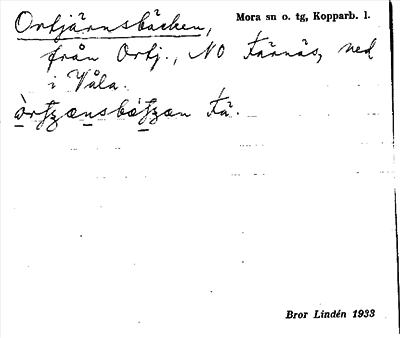 Ortjärnsbäcken, Mora sn o. tg, Kopparb. l.
från Ortj., NO Färnäs, ned
i Våla.
Fä.
Bror Lindén 1933